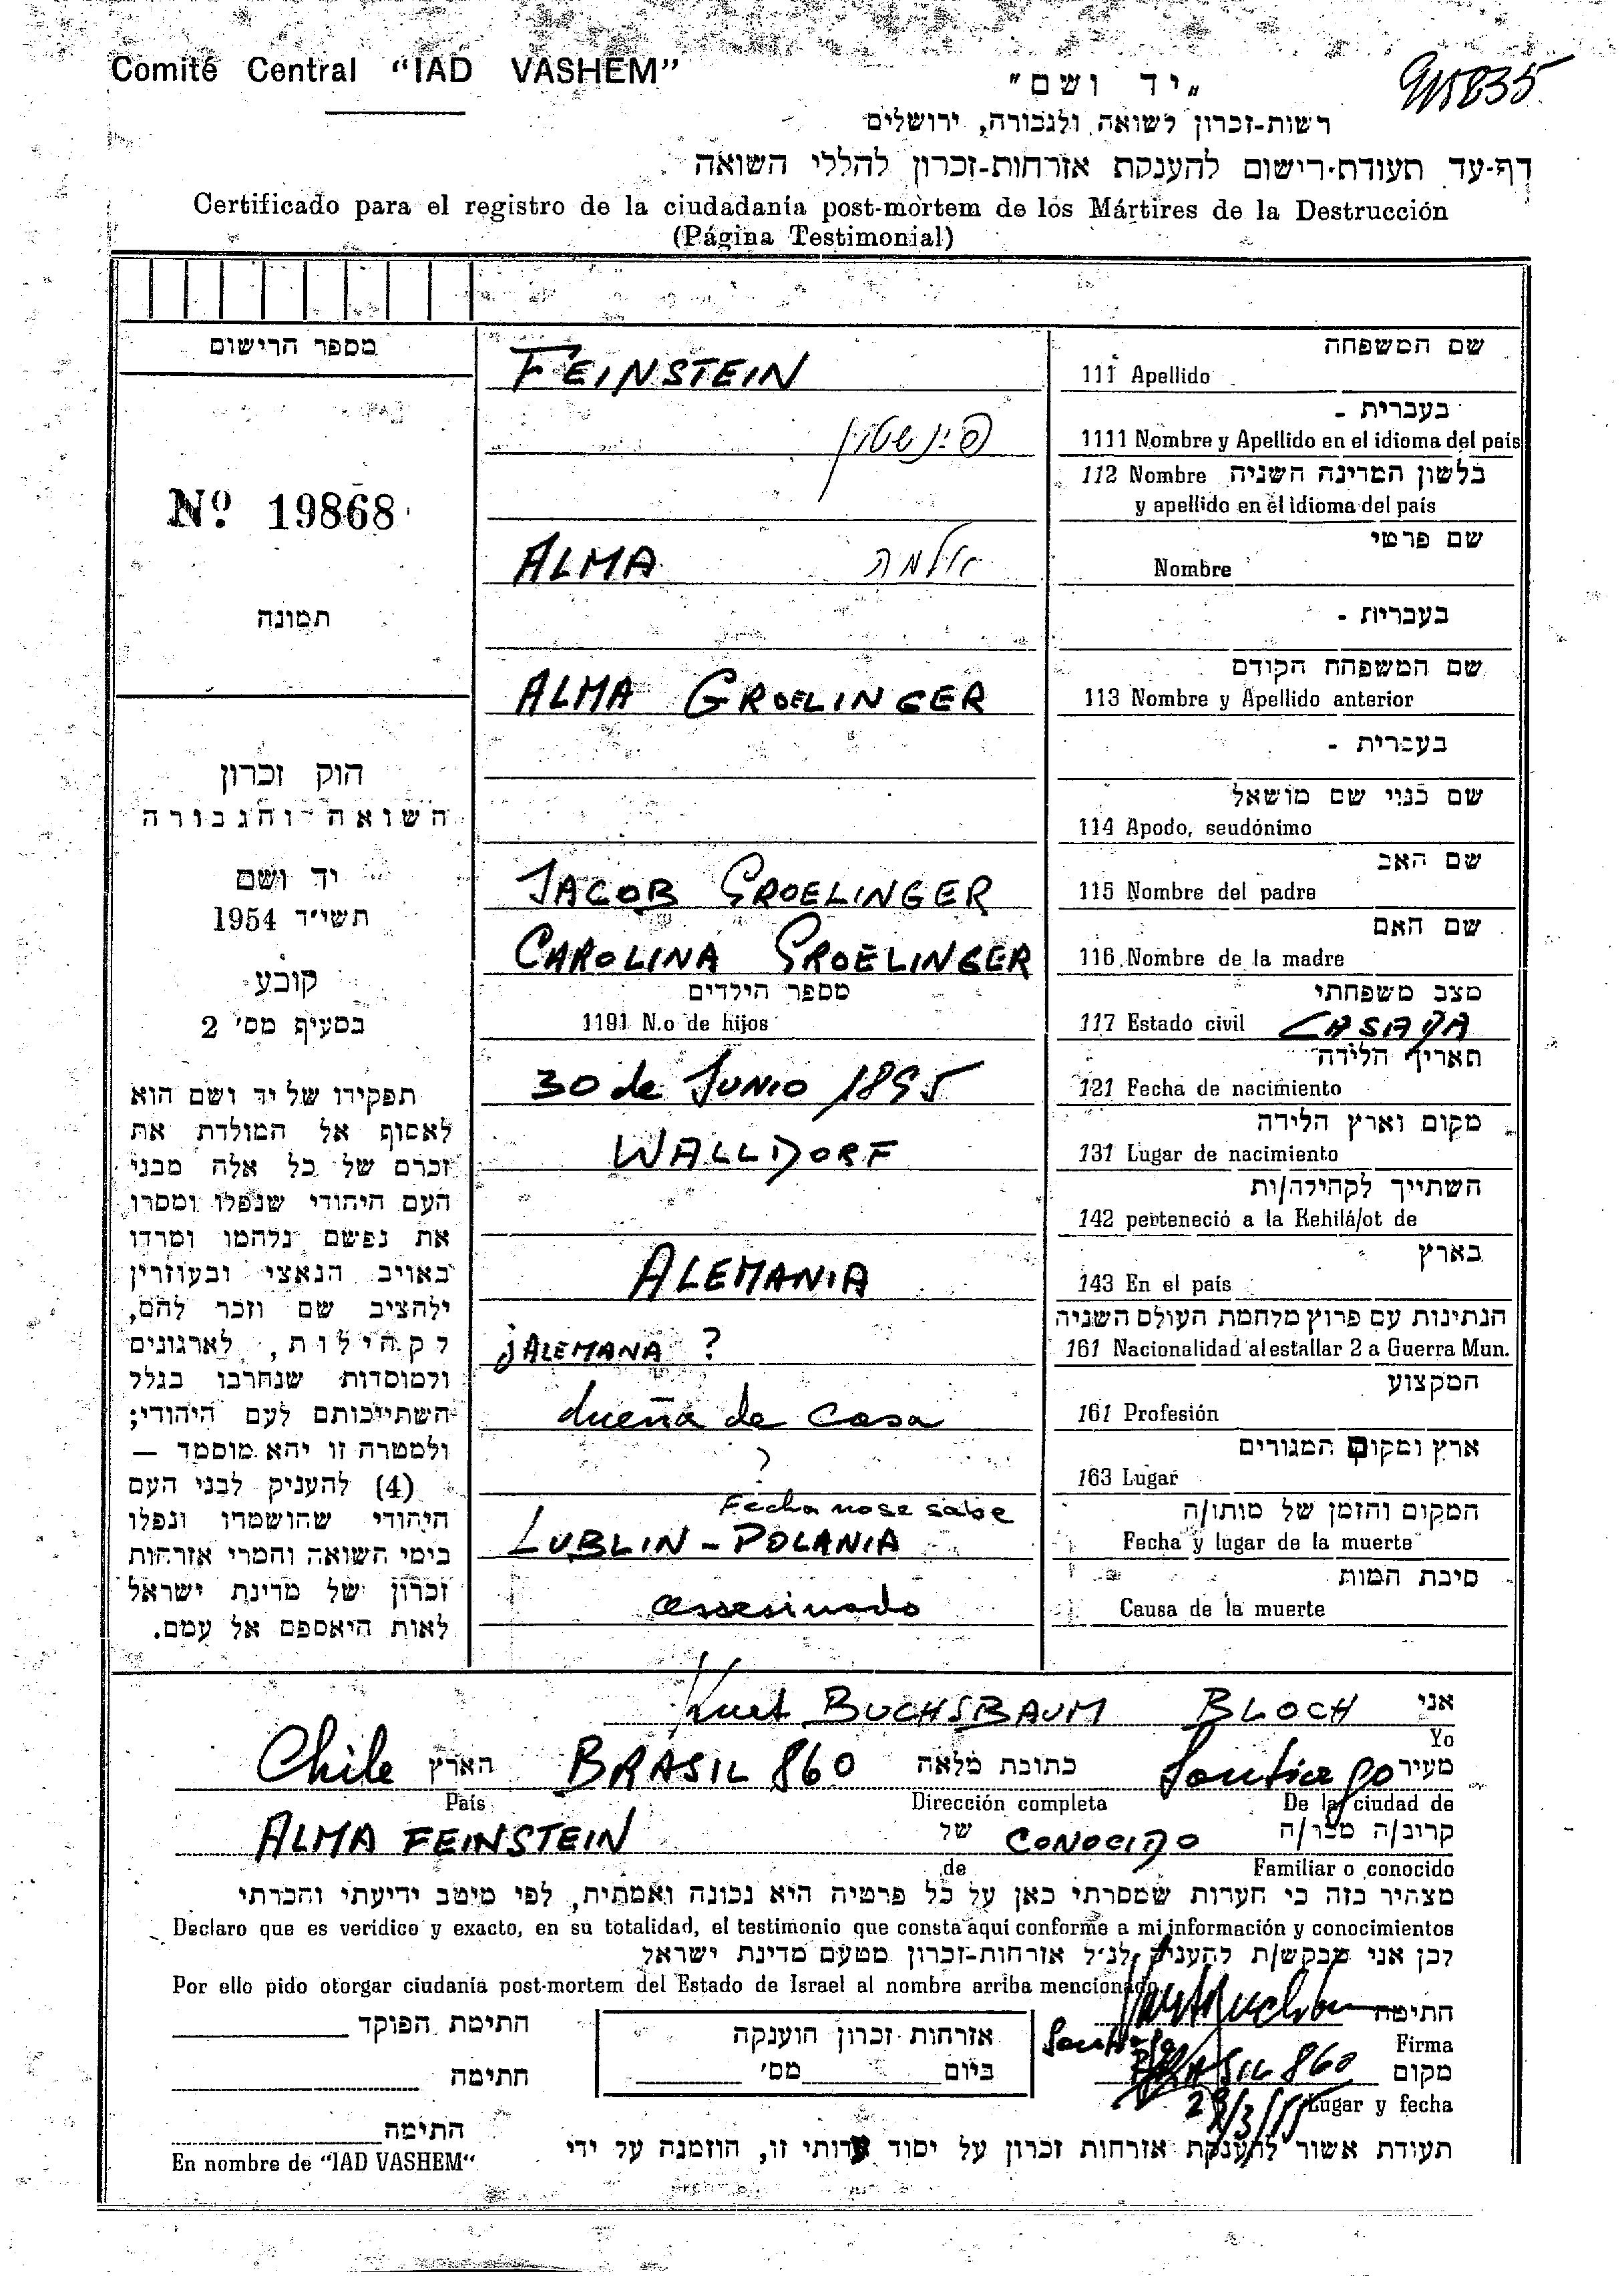 Comité Central "IAD VASHEM"
„יד ושם"
רשות-זכרון לשואה ולגבורה, ירושלים
דף-עד תעודת-רישום להענקת אזרחות-זכרון לחללי השואה
Certificado para el registro de la ciudadanía post-mortem de los Mártires de la Destrucción
(Página Testimonial)
מספר הרישום
Nº 19868
תמונה
חוק זכרון
השואה והגבורה
יד ושם
תשי"ד 1954
קובע
בסעיף מס' 2
תפקידו של יד ושם הוא
לאסוף אל המולדת את
זכרם של כל אלה מבני
העם היהודי שנפלו ומסרו
את נפשם נלחמו ומרדו
באויב הנאצי ובעוזריו
ולהציב שם וזכר להם,
לקהילות, לארגונים
ולמוסדות שנחרבו בגלל
השתייכותם לעם היהודי;
ולמטרה זו יהא מוסמד —
(4) להעניק לבני העם
היהודי שהושמדו ונפלו
בימי השואה והמרי אזרחות
זכרון של מדינת ישראל
לאות היאספם אל עמם.
שם המשפחה
111 Apellido FEINSTEIN
בעברית -
1111 Nombre y Apellido en el idioma del pais פינשטין
112 Nombre בלשון המדינה השניה
y apellido en el idioma del país
שם פרטי
Nombre ALMA אלמה
בעברית -
שם המשפחה הקודם
113 Nombre y Apellido anterior ALMA GROELINGER
בעברית -
שם כנוי שם מושאל
114 Apodo, seudónimo
שם האב
115 Nombre del padre JACOB GROELINGER
שם האם
116 Nombre de la madre CAROLINA GROELINGER
מצב משפחתי
117 Estado civil CASADA
מספר הילדים
1191 N.o de hijos
תאריך הלידה
121 Fecha de nacimiento 30 de JUNIO 1895
מקום וארץ הלידה
131 Lugar de nacimiento WALLDORF
השתייך לקהילה/ות
142 perteneció a la Kehilá/ot de
בארץ
143 En el país ALEMANIA
הנתינות עם פרוץ מלחמת העולם השניה
161 Nacionalidad al estallar 2 a Guerra Mun. ¿ALEMANA ?
המקצוע
161 Profesión dueña de casa
ארץ ומקום המגורים
163 Lugar ?
המקום והזמן של מותו/ה
Fecha no se sabe
Fecha y lugar de la muerte LUBLIN - POLANIA
סיבת המות
Causa de la muerte assesinado
אני Kurt BUCHSBAUM BLOCH
Yo
מעיר Santiago כתובת מלאה BRASIL 860 הארץ Chile
De la ciudad de Dirección completa País
קרוב/ה מכר/ה CONOCIDO של ALMA FEINSTEIN
Familiar o conocido de
מצהיר בזה כי העדות שמסרתי כאן על כל פרטיה היא נכונה ואמתית, לפי מיטב ידיעתי והכרתי
Declaro que es verídico y exacto, en su totalidad, el testimonio que consta aquí conforme a mi información y conocimientos
לכן אני מבקש/ת להעניק לנ"ל אזרחות-זכרון מטעם מדינת ישראל
Por ello pido otorgar ciudanía post-mortem del Estado de Israel al nombre arriba mencionado
חתימה
Firma
מקום Santiago
BRASIL 860
Lugar y fecha
אזרחות זכרון הוענקה
ביום מס'
חתימת הפוקד
חתימה
חתימה
En nombre de "IAD VASHEM"
תעודת אשור להענקת אזרחות זכרון על יסוד עדותי זו, הוזמנה על ידי